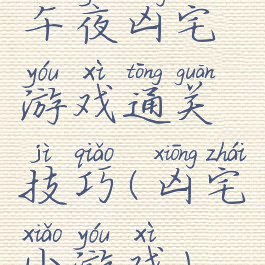 午夜凶宅
yóu xì tōng guān
游戏通关
jì qiǎo xiōng zhái
技巧(凶宅
xiǎo yóu xì
小游戏)